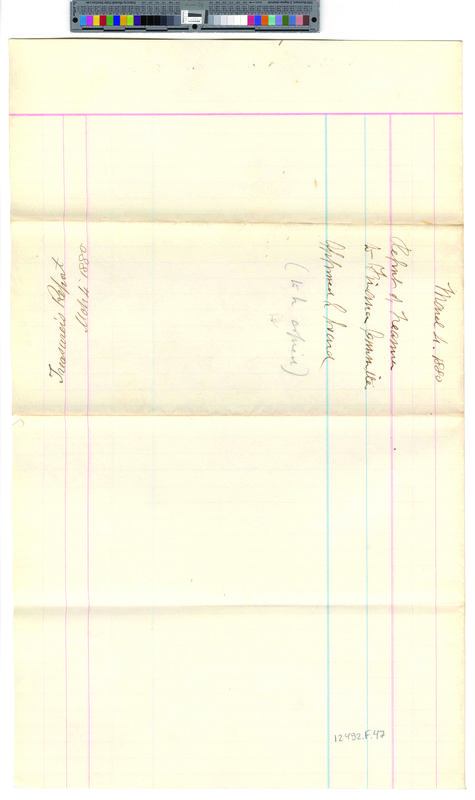 March 4. 1880
Report of Treasurer
to Finance Committee
Approved & found
(to be copied)
Mch 4 1880
Treasurer's Report
12492.F.47